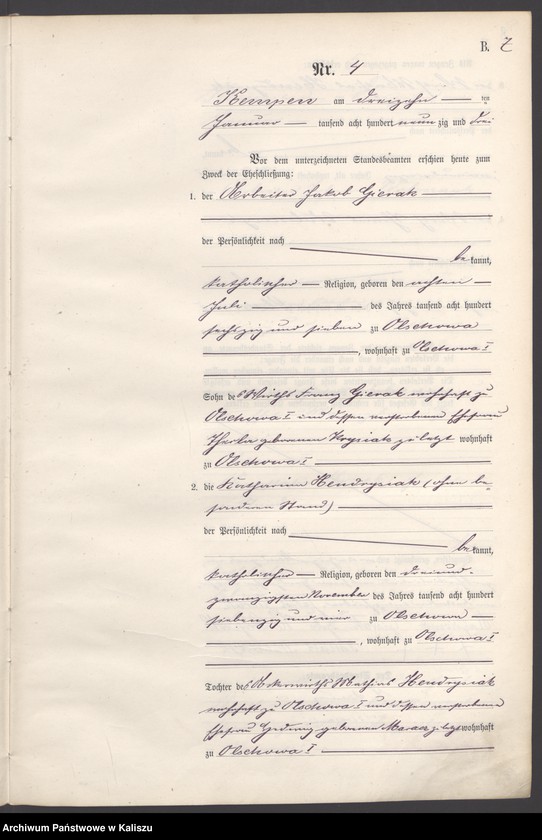 B. 7
Nr. 4
Kempen am dreizehn ten
Januar tausend acht hundert neunzig und drei
Vor dem unterzeichneten Standesbeamten erschien heute zum
Zweck der Eheschließung:
1. der Arbeiter Jakob Gierak
der Persönlichkeit nach
bekannt,
katholischer Religion, geboren den achten
Juli des Jahres tausend acht hundert
sechszig und sieben zu Olschowa
, wohnhaft zu Olschowa I
Sohn des Wirths Franz Gierak wohnhaft zu
Olschowa I und dessen verstorbenen Ehefrau
Thekla geborenen Krysiak zuletzt wohnhaft
zu Olschowa I
2. die Katharina Hendrysiak (ohne be-
sonderen Stand)
der Persönlichkeit nach
bekannt,
katholischer Religion, geboren den dreiund-
zwanzigsten November des Jahres tausend acht hundert
siebenzig und vier zu Olschowa
, wohnhaft zu Olschowa I
Tochter des Ackerwirths Mathias Hendrysiak
wohnhaft zu Olschowa I und dessen verstorbenen
Ehefrau Hedwig geborenen zuletzt wohnhaft
zu Olschowa I
Archiwum Państwowe w Kaliszu